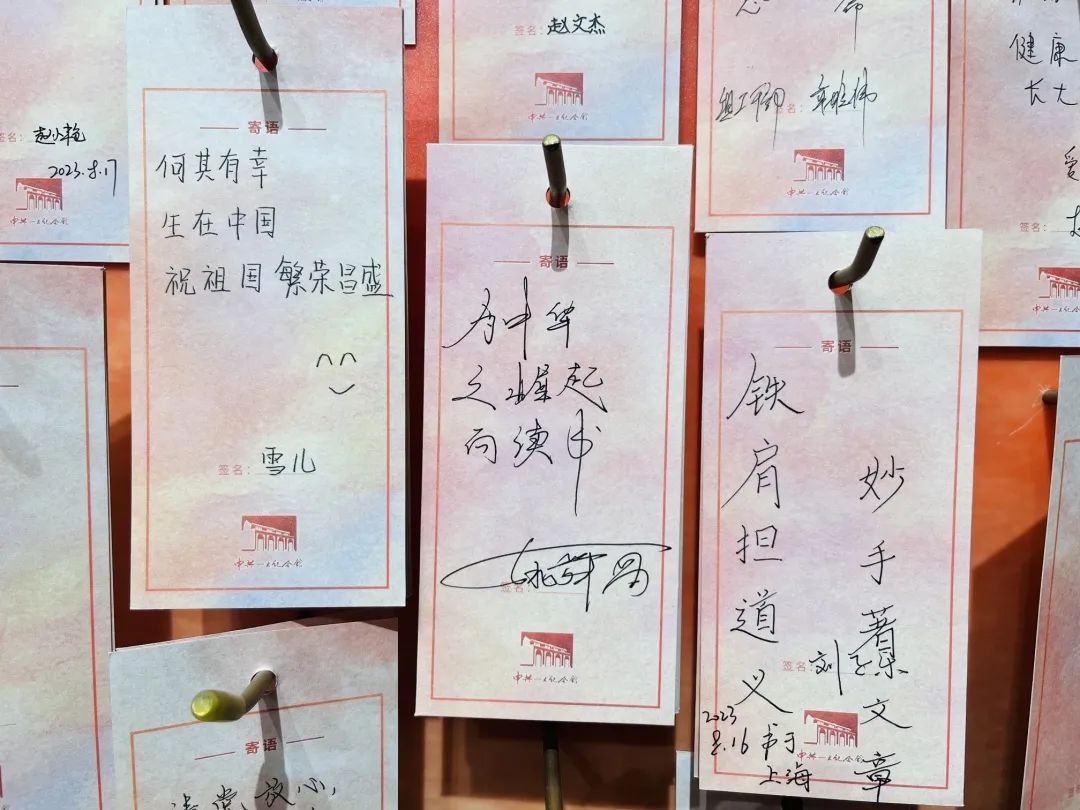 签名:
2023.8.17
中共一大纪念馆
寄语
何其有幸
生在中国
祝祖国繁荣昌盛
签名: 雪儿
中共一大纪念馆
签名: 赵文杰
中共一大纪念馆
寄语
为中华
之崛起
而读书
签名:
中共一大纪念馆
签名:
中共一大纪念馆
寄语
铁肩担道义
妙手著文章
签名: 刘
2023
8.16 书于
上海
中共一大纪念馆
健康
长大
爱
签名:
中共一大纪念馆
寄语
放心